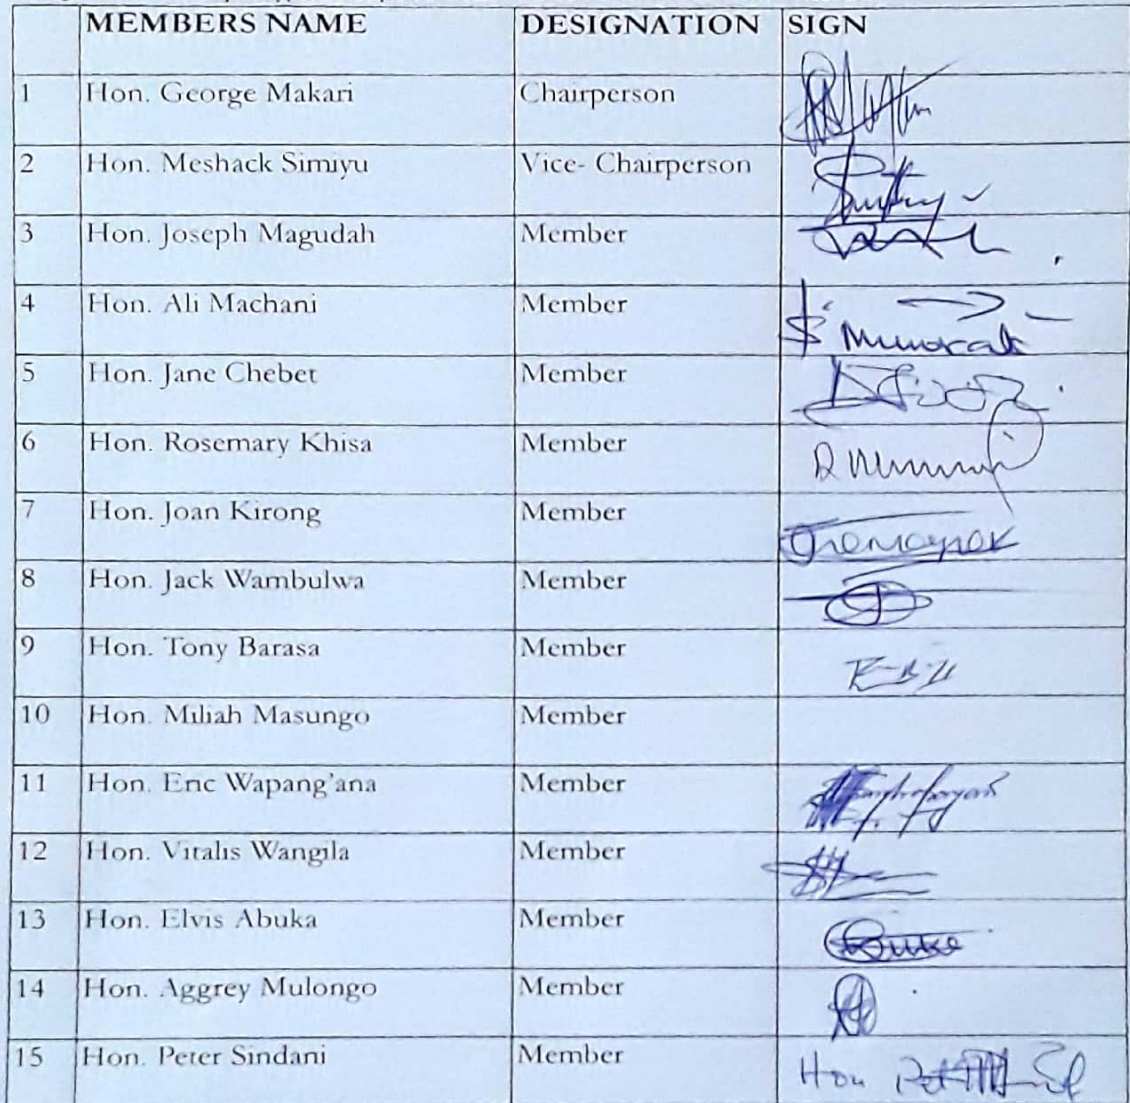 MEMBERS NAME DESIGNATION SIGN
1 Hon. George Makari Chairperson
2 Hon. Meshack Simiyu Vice- Chairperson
3 Hon. Joseph Magudah Member
4 Hon. Ali Machani Member
5 Hon. Jane Chebet Member
6 Hon. Rosemary Khisa Member
7 Hon. Joan Kirong Member
8 Hon. Jack Wambulwa Member
9 Hon. Tony Barasa Member
10 Hon. Miliah Masungo Member
11 Hon. Eric Wapang'ana Member
12 Hon. Vitalis Wangila Member
13 Hon. Elvis Abuka Member
14 Hon. Aggrey Mulongo Member
15 Hon. Peter Sindani Member Hon